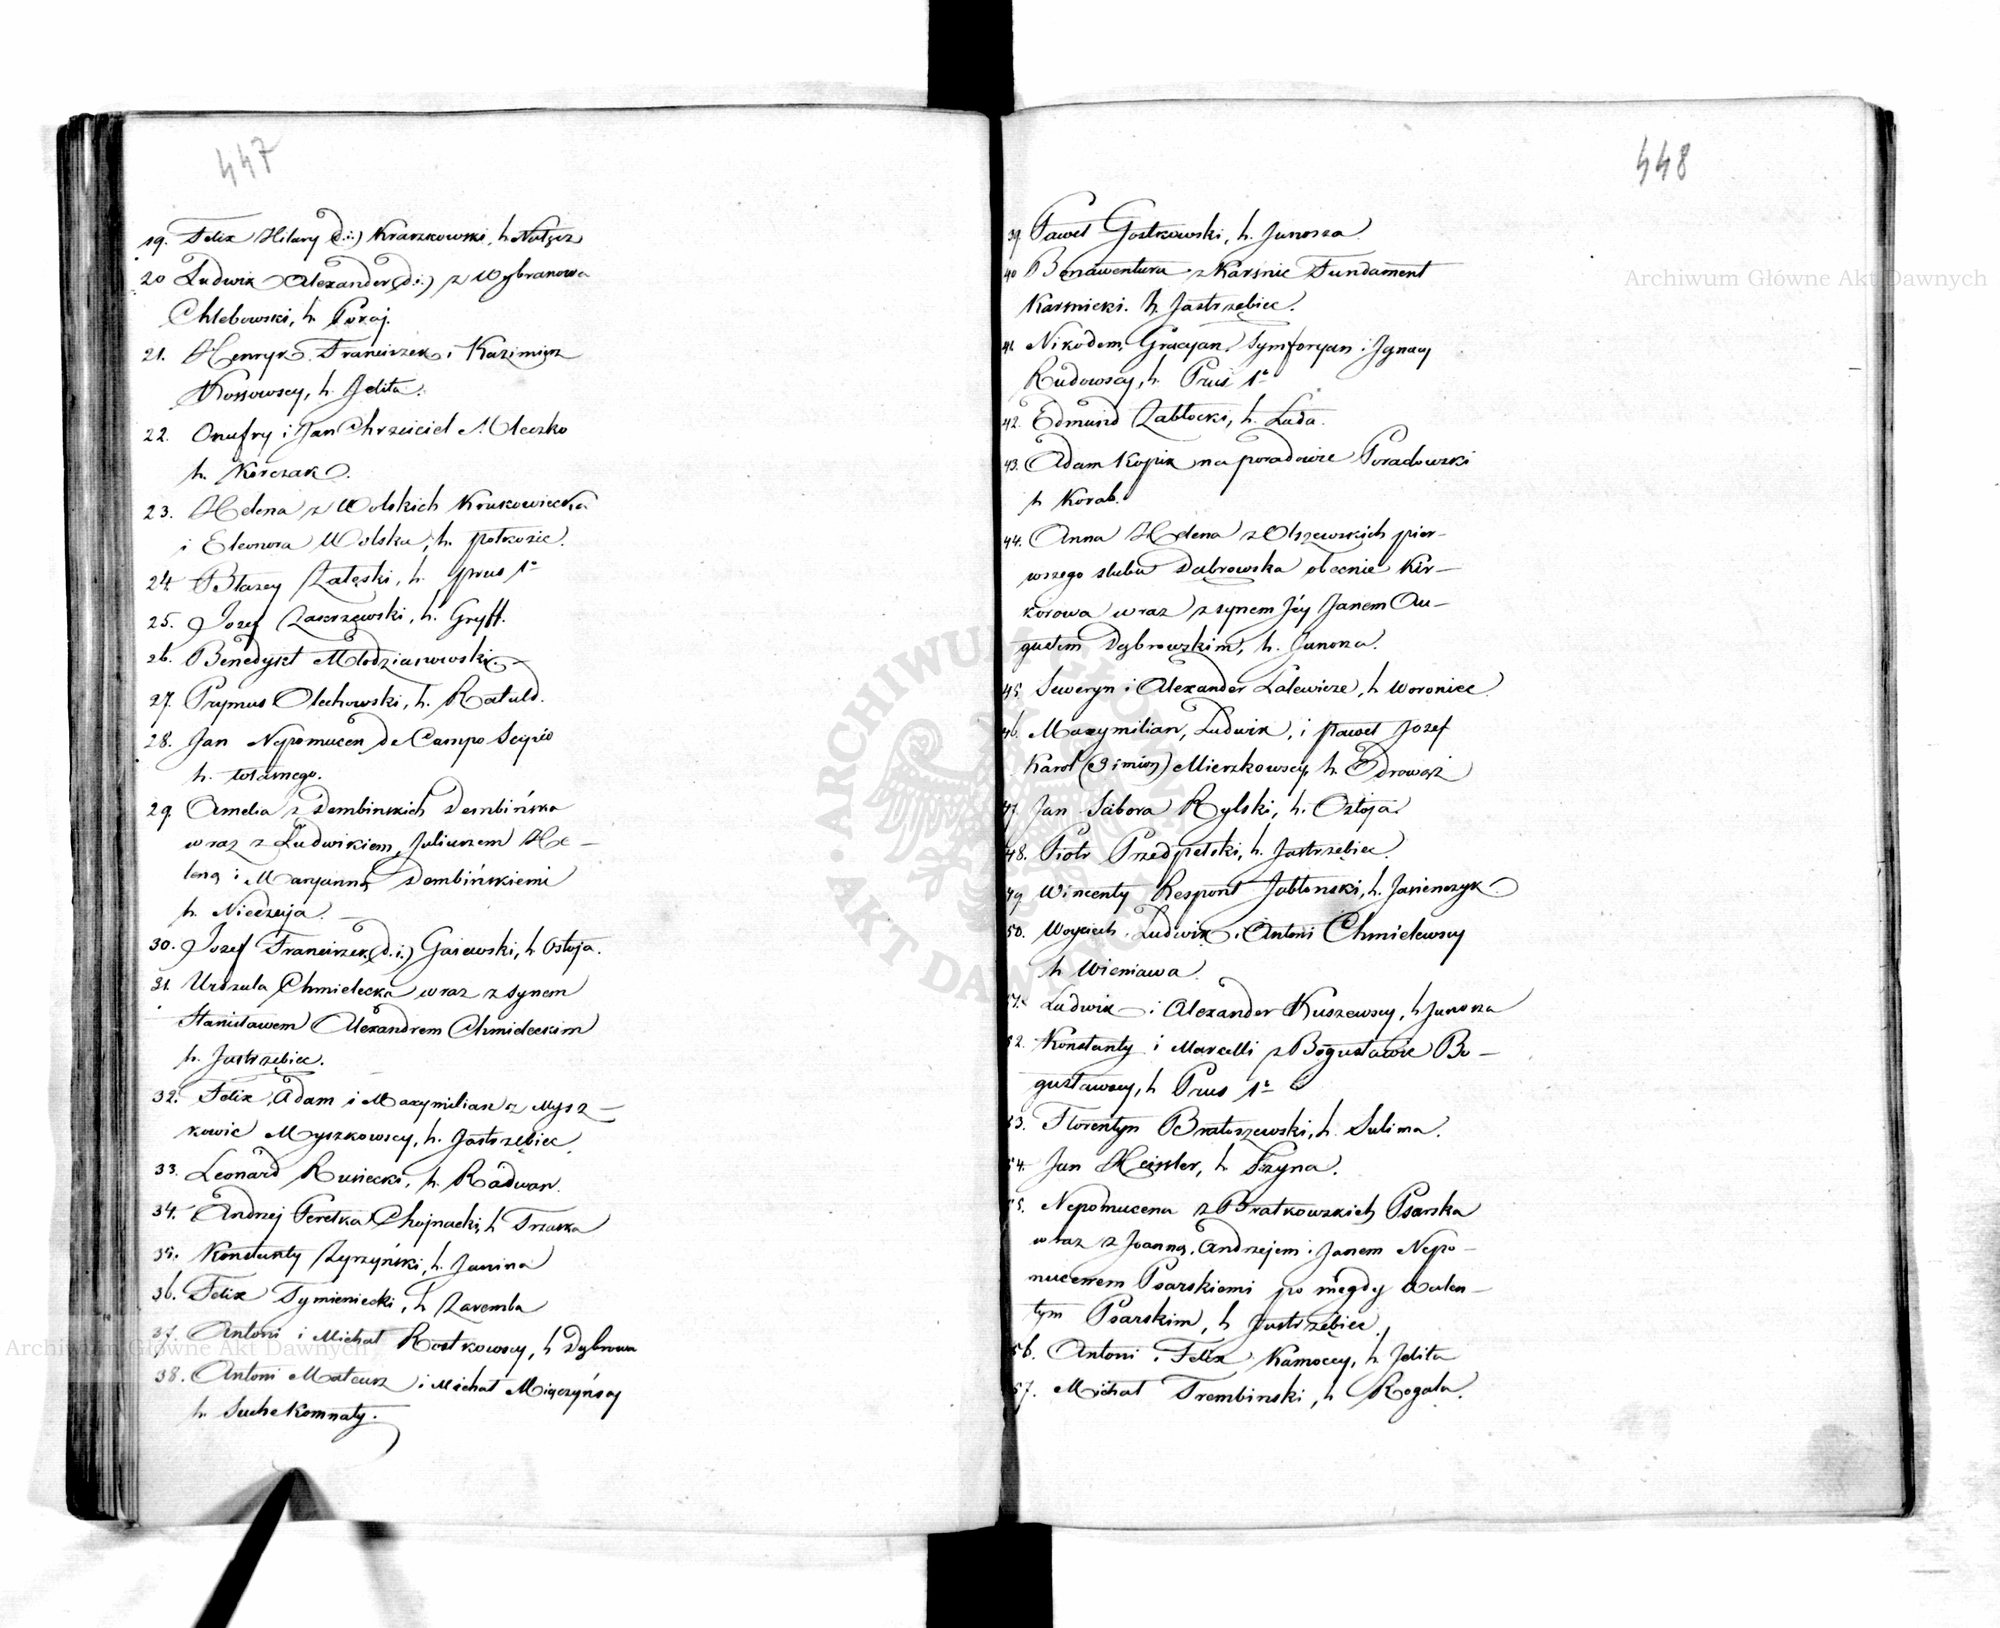 447
19. Felix Hilary (2. i.) Kraszkowski, h. Nałęcz
20 Ludwik Alexander (2. i.) z Wybranowa
Chlebowski, h. Poraj.
21. Henryk, Franciszek i Kazimierz
Kossowscy, h. Jelita.
22. Onufry i Jan Chrzciciel Mleczko
h. Korczak.
23. Helena z Wolskich Krukowiecka
i Eleonora Wolska, h. Półkozic.
24. Błażey Załęski, h. Prus 1o
25. Jozef Zakrzewski, h. Gryff.
26. Benedykt Młodzianowski.
27. Prymus Olechowski, h. Ratuld.
28. Jan Nepomucen de Campo Scipio
h. własnego.
29. Amelia z Dembińskich Dembińska
wraz z Ludwikiem, Juliuszem He-
leną i Maryanną Dembińskiemi
h. Nieczuja.
30. Jozef Franciszek (2. i.) Gaiewski, h. Ostoja.
31. Urszula Chmielecka wraz z synem
Stanisławem Alexandrem Chmieleckim
h. Jastrzębiec.
32. Felix, Adam i Maxymilian z Mysz-
kowic Myszkowscy, h. Jastrzębiec.
33. Leonard Rusiecki, h. Radwan.
34. Andrzej Peretka Chojnacki, h. Trzaska
35. Konstanty Zyrzyński, h. Janina
36. Felix Tymieniecki, h. Zaremba
37. Antoni i Michał Rostkowscy, h. Dąbrowa
38. Antoni Mateusz i Michał Miączyńscy
h. Suche Komnaty.
448
39. Paweł Gostkowski, h. Junosza
40 Benawentura z Karsnic Fundament
Karsnicki. h. Jastrzębiec.
41. Nikodem, Gracyan, Symforyan i Ignacy
Rudowscy, h. Prus 1o
42. Edmund Zabłocki, h. Łada.
43. Adam Kopik na poradowie Poradowski
h Korab.
44. Anna Helena z Olszewskich pier-
wszego ślubu Dąbrowska obecnie Kir-
korowa wraz z synem Jéy Janem Au-
gustem Dąbrowskim, h. Junosza.
45. Seweryn i Alexander Zalewicze, h Woroniec
46. Maxymilian, Ludwik, i Paweł Jozef
Karol (3 imion) Mierzkowscy, h. Odrowąż
47. Jan Scibora Rylski, h. Ostoja
48. Piotr Przedpełski, h. Jastrzębiec.
49 Wincenty Respont Jabłonski, h. Jasieńczyk
50. Woyciech, Ludwik i Antoni Chmielewscy
h Wieniawa
51. Ludwik i Alexander Kuszewscy, h Junosza
52. Konstanty i Marcelli z Bogusławic Bo-
gusławscy, h Prus 1o
53. Florentyn Bratoszewski, h. Sulima.
54. Jan Heissler, h Szyna.
55. Nepomucena z Bratkowskich Psarska
wraz z Joanną, Andrzejem i Janem Nepo-
mucenem Psarskiemi po niegdy Walen-
tym Psarskim, h Jastrzębiec.
56. Antoni i Felix Kamoccy, h. Jelita
57. Michał Trembinski, h Rogala.
Archiwum Główne Akt Dawnych
Archiwum Główne Akt Dawnych
ARCHIWUM GŁÓWNE AKT DAWNYCH